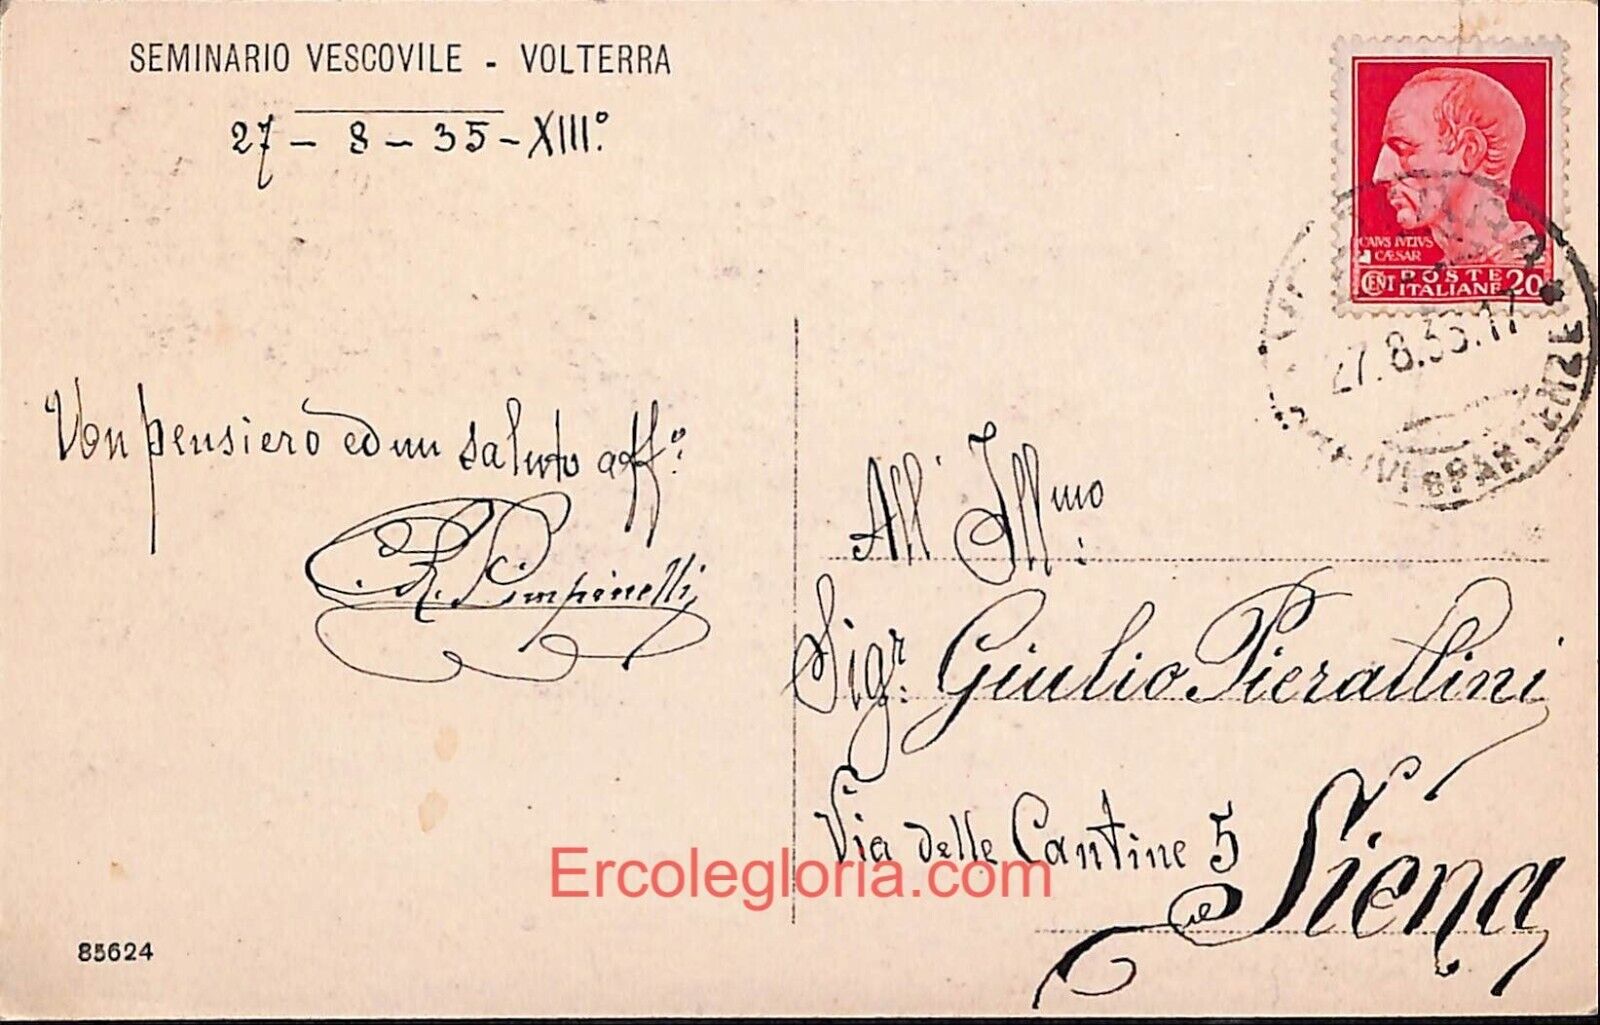 SEMINARIO VESCOVILE - VOLTERRA
27 - 8 - 35 - XIII.º
CAIVS IVLIVS
CÆSAR
CENT POSTE ITALIANE 20
27.8.35.17
PARTENZE
Un pensiero ed un saluto aff.º
R. Pimpinelli
All' Ill.mo
Sig.r Giulio Pierattini
Via delle Cantine 5
Siena
Ercolegloria.com
85624